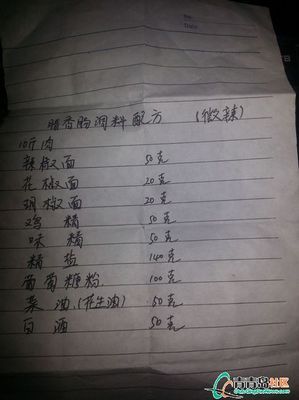 腊香肠调料配方 (微辣)
10斤肉
辣椒面 50克
花椒面 20克
胡椒面 20克
鸡精 50克
味精 50克
精盐 140克
葡萄糖粉 100克
菜油(花生油) 50克
白酒 50克
青青岛社区